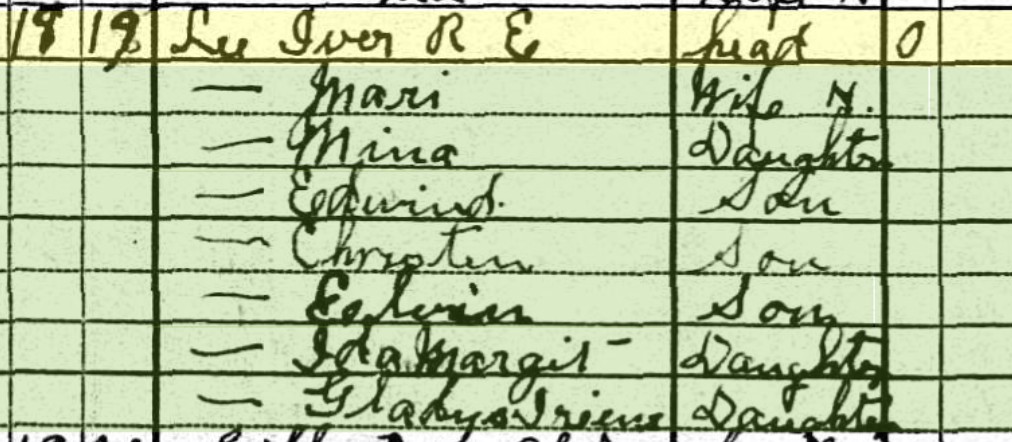 18 19 Lee Iver R E head O
— Mari Wife H.
— Mina Daughter
— Edwind. Son
— Christen Son
— Edwin Son
— Ida Margit Daughter
— Gladys Iriene Daughter